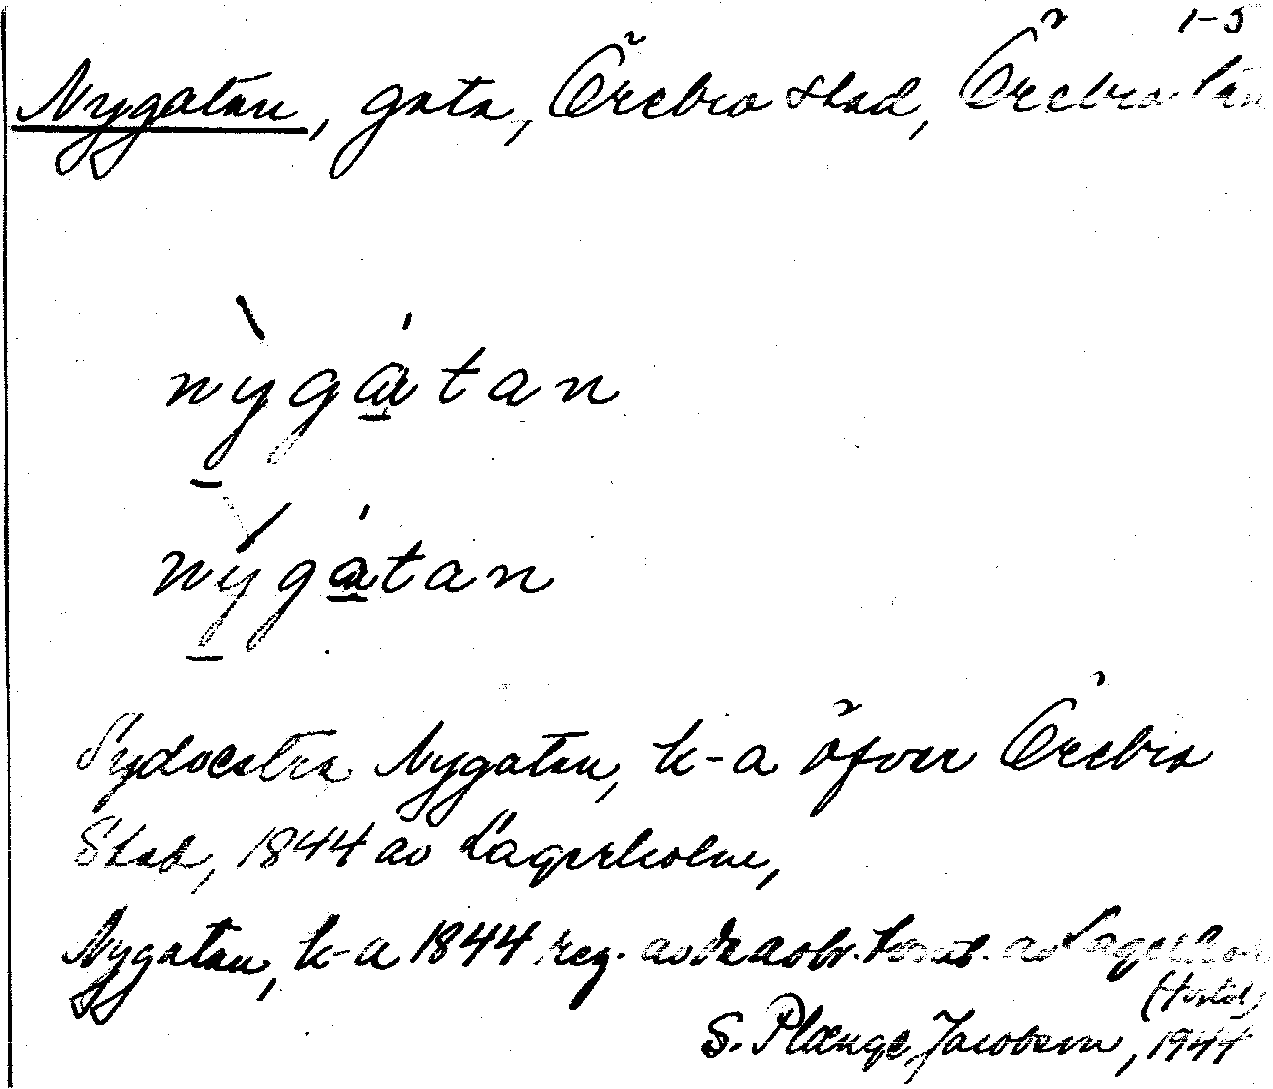 1-5
Nygatan, gata, Örebro stad, Örebro län
nỳgátan
nýgàtan
Sydoestra Nygatan, k-a öfver Örebro
Stad, 1844 av Lagerholm,
Nygatan, k-a 1844 reg. av Lagerholm
(Hovsta)
S. Plænge Jacobson, 1944